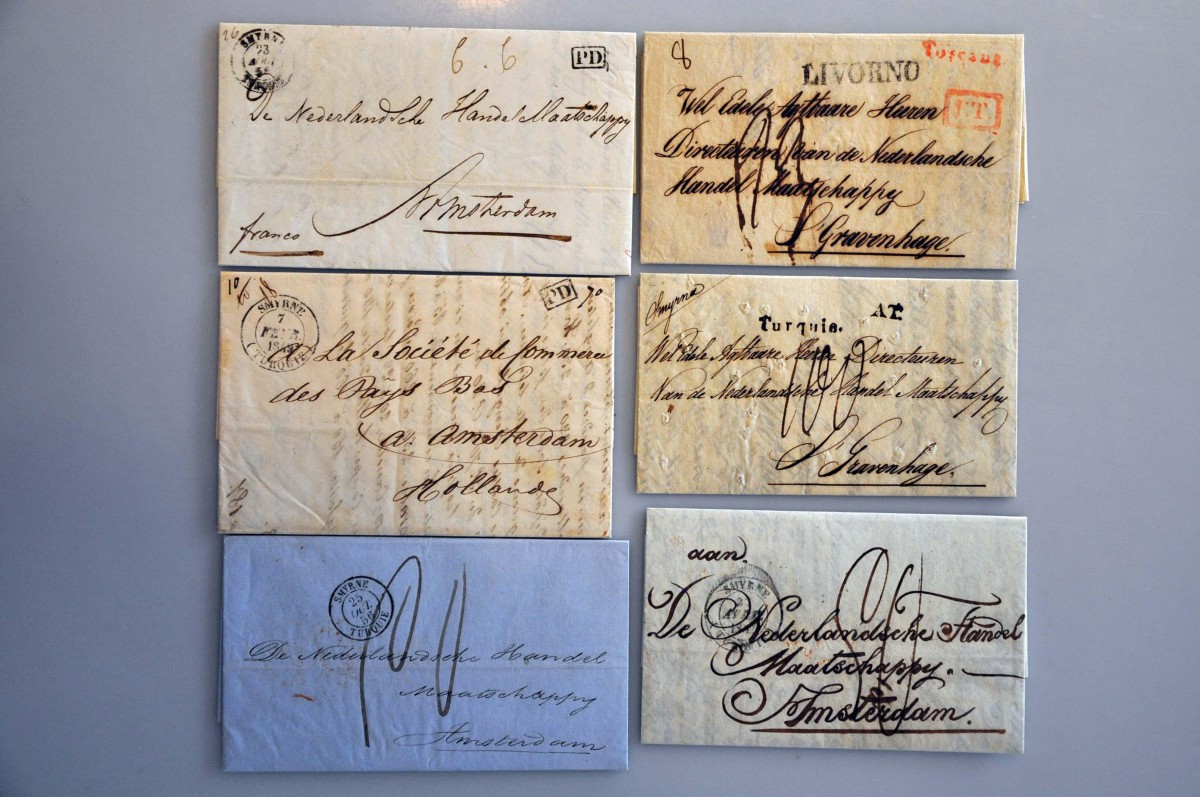 26
SMYRNE
23
TURQUIE
6 . 6
PD
De Nederlandsche Handel Maatschappy
Amsterdam
franco
8
LIVORNO
Toscane
L.T.
Wel Edele Agtbaare Heeren
Directeuren van de Nederlandsche
Handel Maatschappy
S'Gravenhage.
10
SMYRNE
7
(TURQUIE)
PD
70
La Société de Commerce
des Pays Bas
a. Amsterdam
Hollande
Smyrna
Turquie.
AT.
Wel Edele Agtbaare Heeren Directeuren
Van de Nederlandsche Handel Maatschappy
S'Gravenhage.
SMYRNE
25
OCT.
56
TURQUIE
De Nederlandsche Handel
Maatschappy
Amsterdam
aan.
SMYRNE
De Nederlandsche Handel
Maatschappy.
Amsterdam.